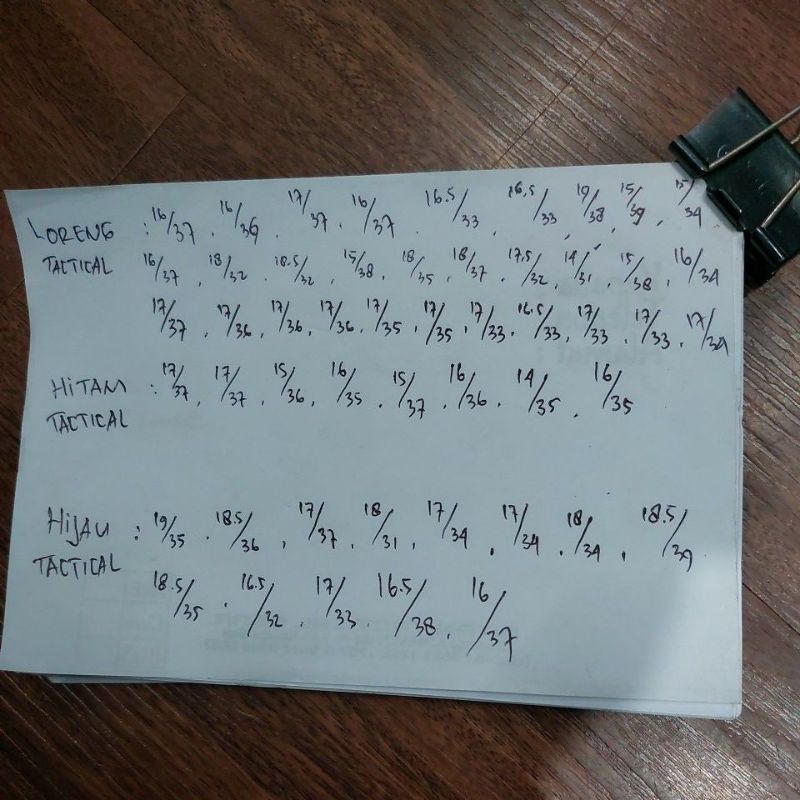 LORENG : 16/37 . 16/36 . 17/37 . 16/37 . 16.5/33 , 16.5/33 , 19/38 , 15/39 , 15/34
TACTICAL 16/37 , 18/32 . 18.5/32 , 15/38 . 18/35 , 18/37 . 17.5/32 , 14/31 , 15/38 , 16/34
17/37 , 17/36 , 17/36 , 17/36 , 17/35 , 17/35 , 17/33 , 16.5/33 , 17/33 , 17/33 , 17/34
HITAM : 17/37 , 17/37 , 15/36 , 16/35 , 15/37 , 16/36 , 14/35 , 16/35
TACTICAL
HIJAU : 19/35 . 18.5/36 , 17/37 , 18/31 , 17/34 , 17/34 , 18/34 , 18.5/39
TACTICAL
18.5/35 . 16.5/32 , 17/33 , 16.5/38 , 16/37